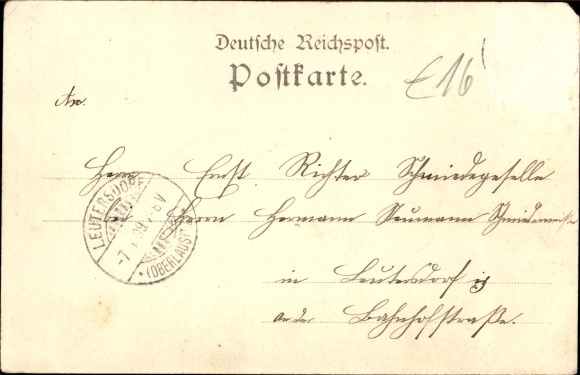 Deutsche Reichspost.
Postkarte.
£16
An.
Herrn Ernst Richter Schmiedegeselle
Herrn Hermann Neumann Schmiedemeister
in Leutersdorf
an der Bahnhofstraße.
LEUTERSDORF
(OBERLAUSITZ)